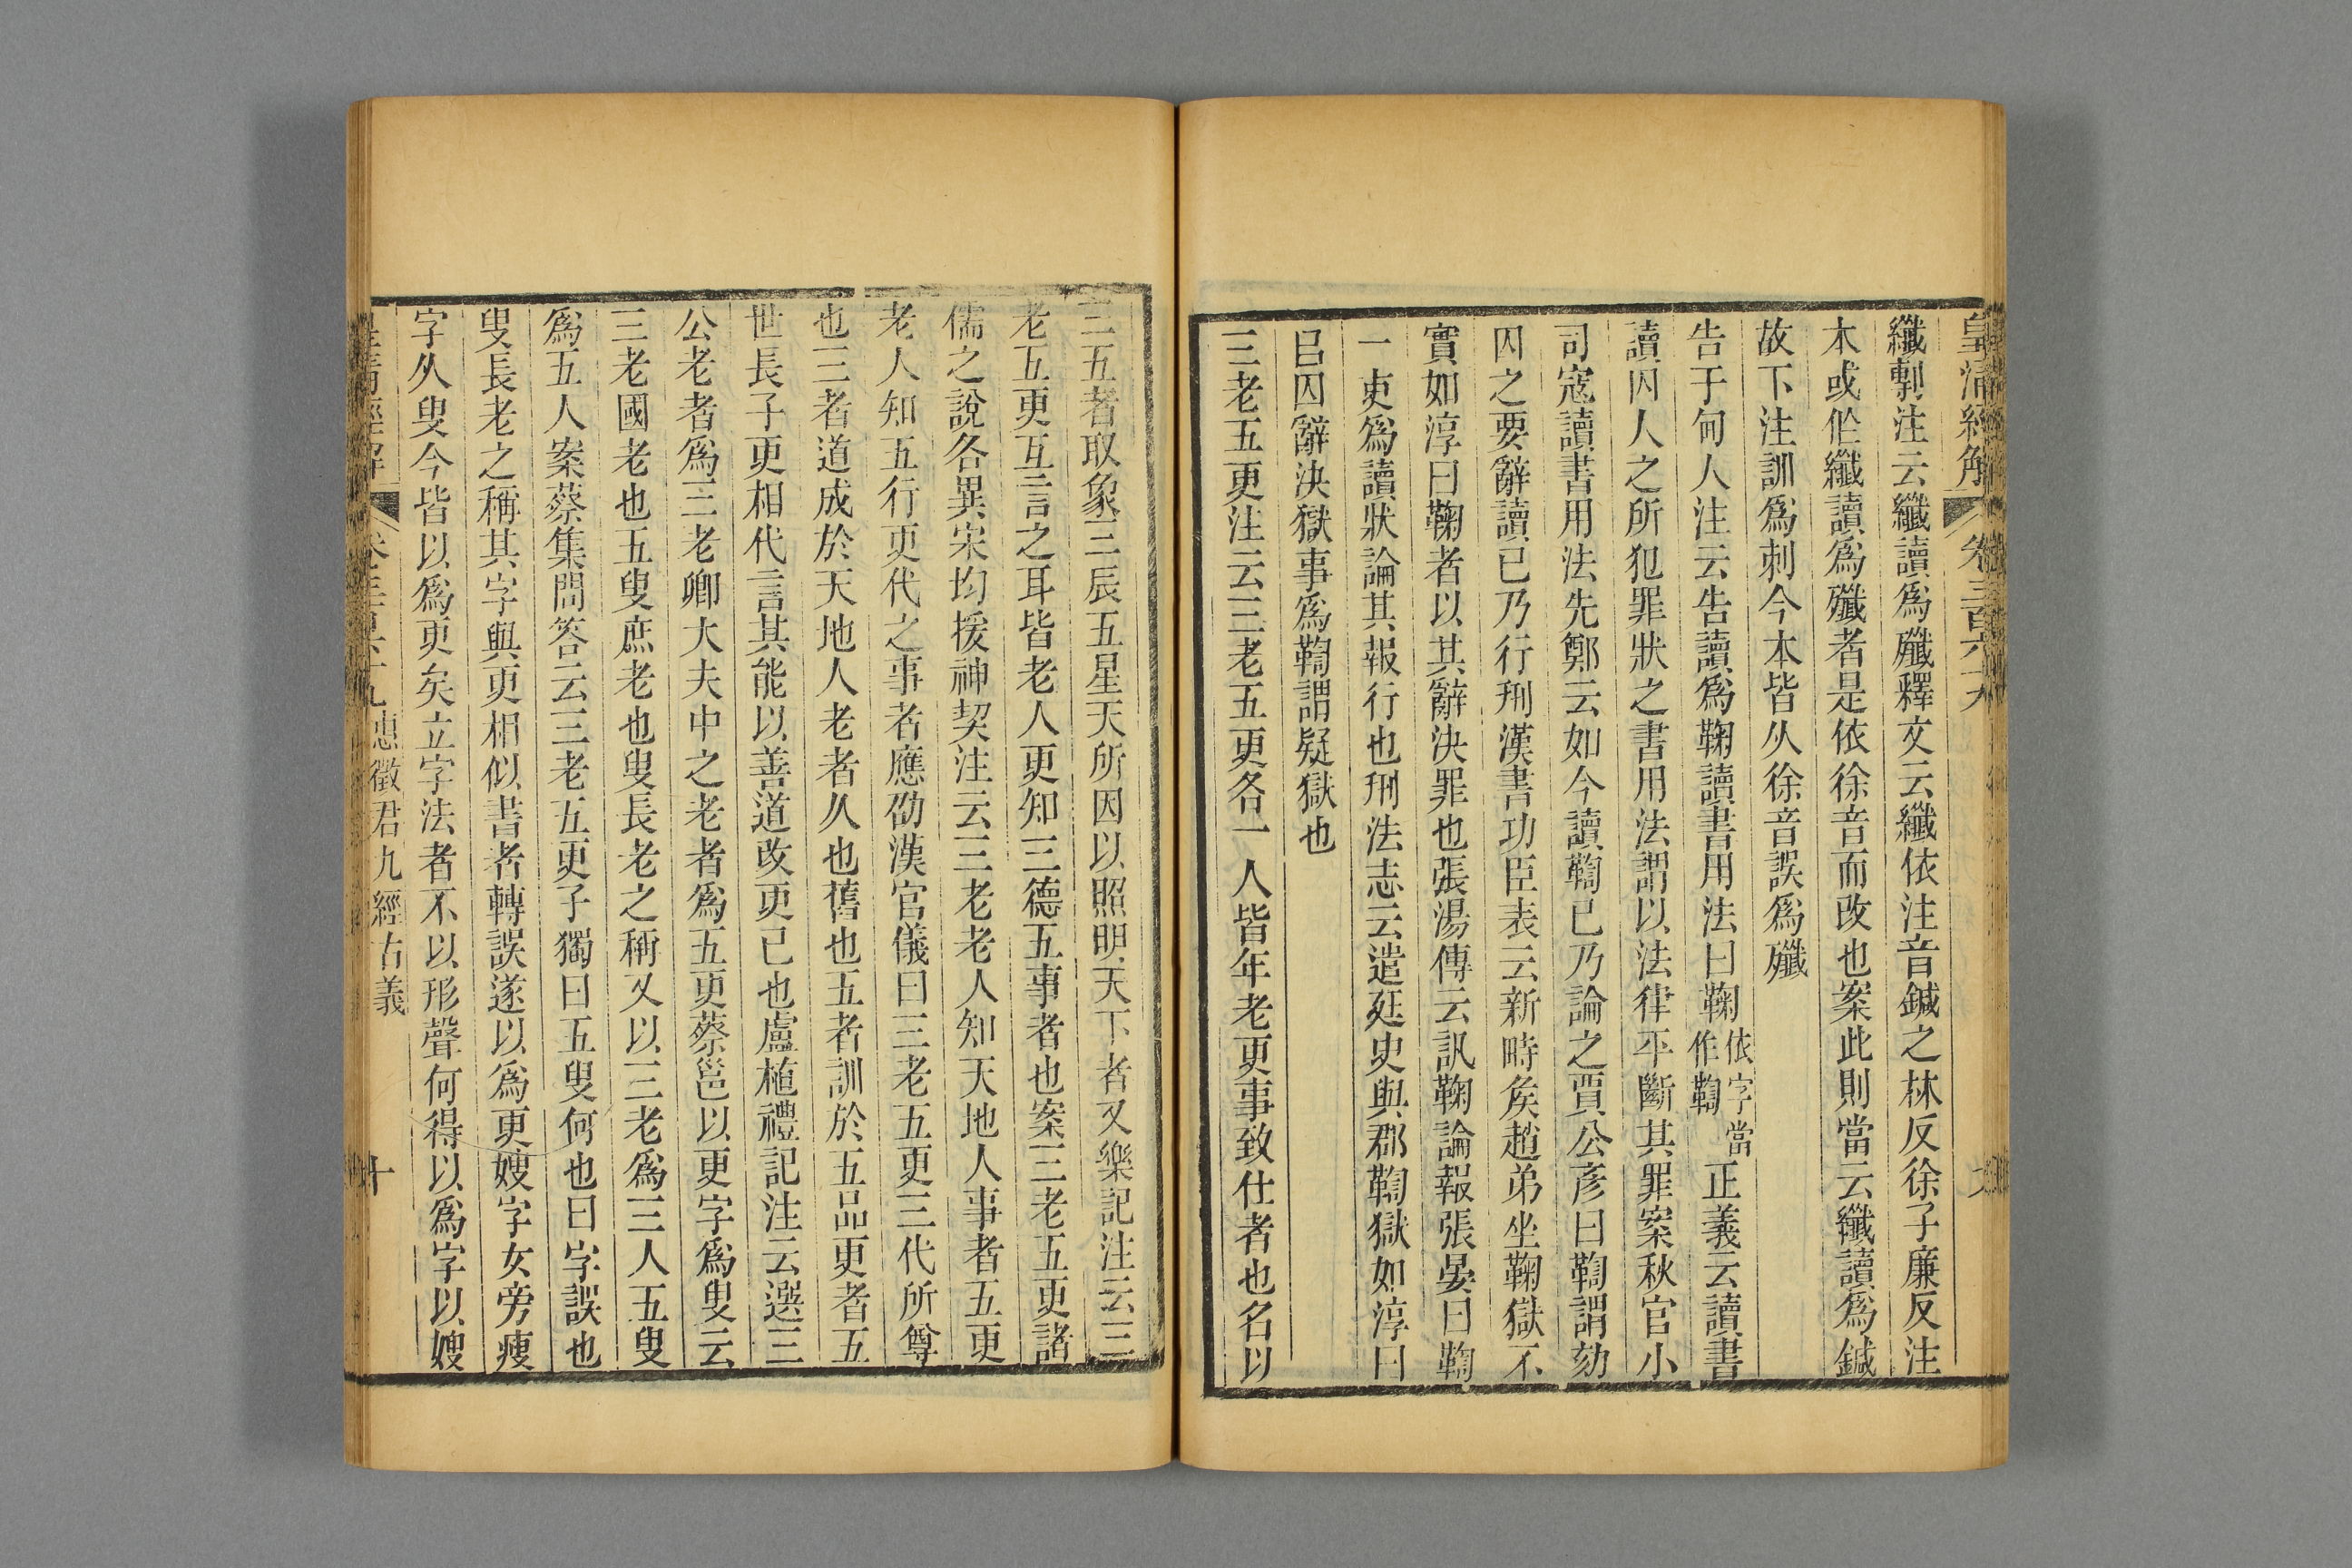 皇清經解 卷三百六十九
纖剸注云纖讀爲殲釋文云纖依注音鍼之林反徐子廉反注
本或作纖讀爲殲者是依徐音而改也案此則當云纖讀爲鍼
故下注訓爲刺今本皆从徐音誤爲殲
告于甸人注云告讀爲鞠讀書用法曰鞠依字當作鞫正義云讀書
讀囚人之所犯罪狀之書用法謂以法律平斷其罪案秋官小
司寇讀書用法先鄭云如今讀鞫已乃論之賈公彦曰鞫謂劾
囚之要辭讀已乃行刑漢書功臣表云新畤矦趙弟坐鞠獄不
實如淳曰鞠者以其辭決罪也張湯傳云訊鞠論報張晏曰鞫
一吏爲讀狀論其報行也刑法志云遣廷史與郡鞫獄如淳曰
㠯囚辭決獄事爲鞫謂疑獄也
三老五更注云三老五更各一人皆年老更事致仕者也名以
三五者取象三辰五星天所因以照明天下者又樂記注云三
老五更互言之耳皆老人更知三德五事者也案三老五更諸
儒之說各異宋均援神契注云三老老人知天地人事者五更
老人知五行更代之事者應劭漢官儀曰三老五更三代所尊
也三者道成於天地人老者久也舊也五者訓於五品更者五
世長子更相代言其能以善道改更已也盧植禮記注云選三
公老者爲三老卿大夫中之老者爲五更蔡邕以更字爲叟云
三老國老也五叟庶老也叟長老之稱又以三老爲三人五叟
爲五人案蔡集問答云三老五更子獨曰五叟何也曰字誤也
叟長老之稱其字與更相似書者轉誤遂以爲更嫂字女旁瘦
字从叟今皆以爲更矣立字法者不以形聲何得以爲字以嫂
皇清經解 卷三百六十九 惠徵君九經古義 十